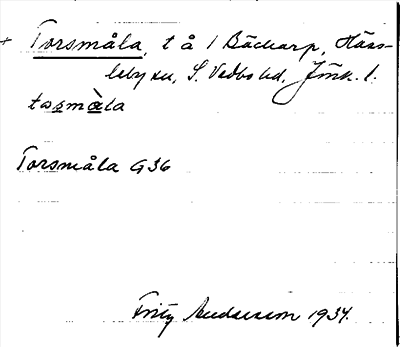 + Torsmåla, t å 1 Bäckarp, Häss-
leby sn, S. Vedbo hd, Jönk. l.
tosmàla
Torsmåla G36
Fritz Andersson 1934.